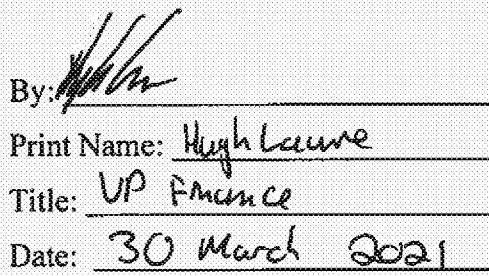 By:
Print Name: Hugh Laurie
Title: VP Finance
Date: 30 March 2021